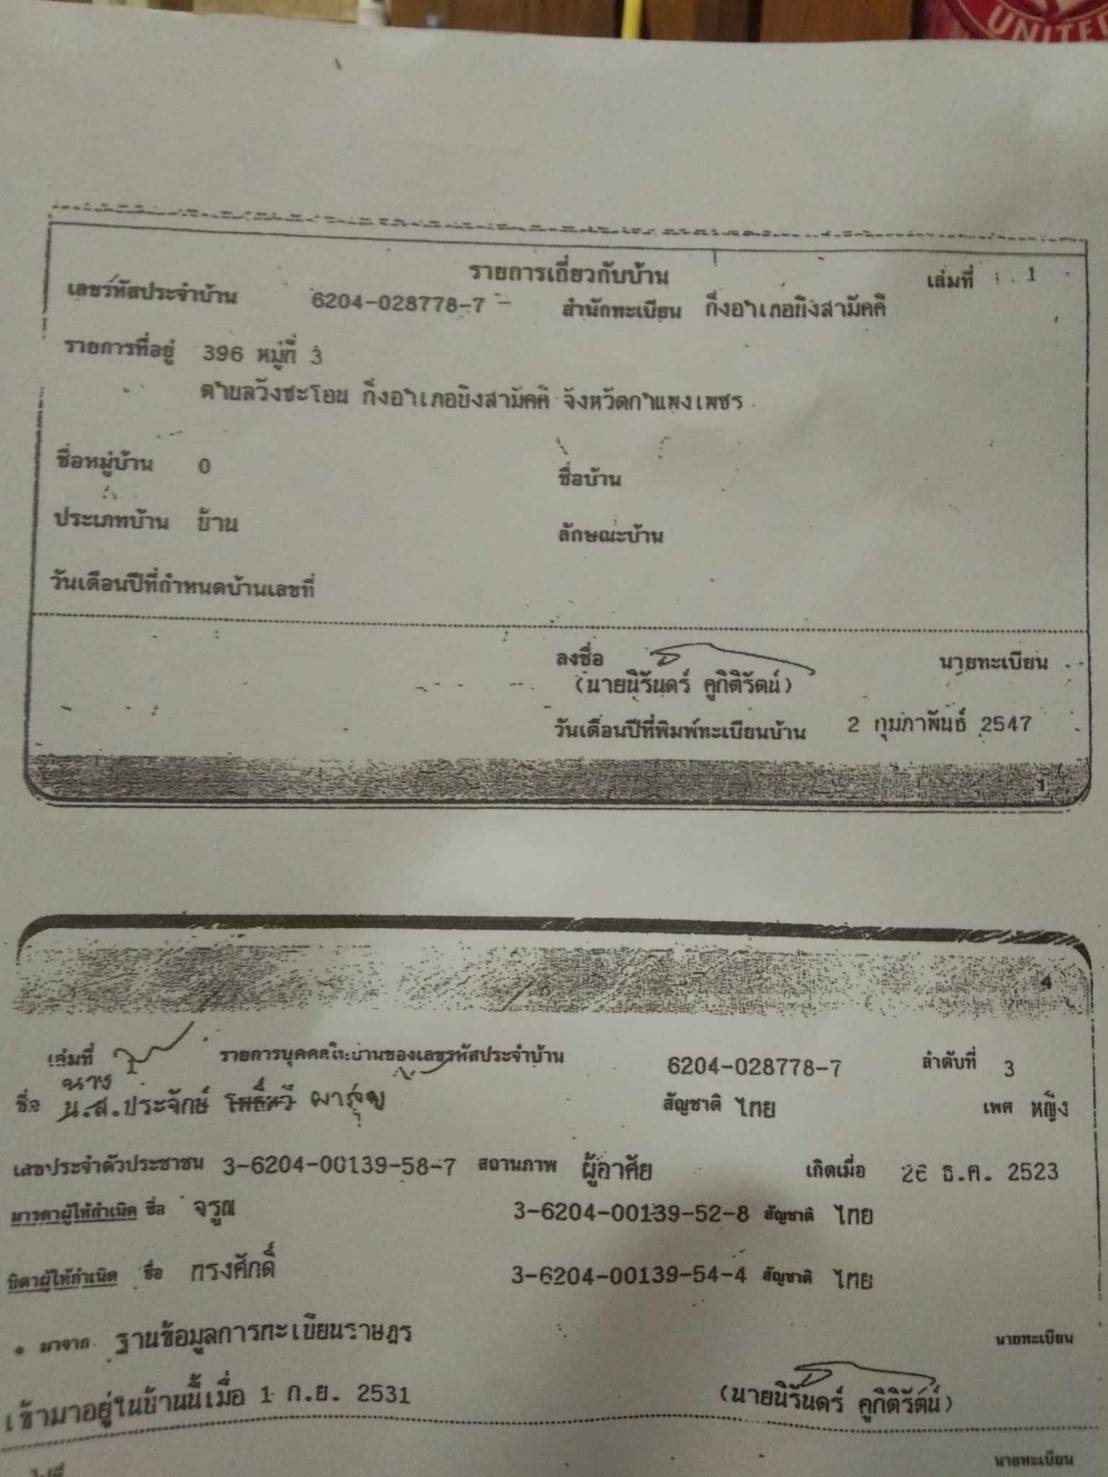 UNITED
รายการเกี่ยวกับบ้าน เล่มที่ 1
เลขรหัสประจำบ้าน 6204-028778-7 สำนักทะเบียน กิ่งอำเภอบึงสามัคคี
รายการที่อยู่ 396 หมู่ที่ 3
ตำบลวังชะโอน กิ่งอำเภอบึงสามัคคี จังหวัดกำแพงเพชร
ชื่อหมู่บ้าน 0 ชื่อบ้าน
ประเภทบ้าน บ้าน ลักษณะบ้าน
วันเดือนปีที่กำหนดบ้านเลขที่
ลงชื่อ นายทะเบียน
(นายนิรันดร์ คูกิติรัตน์)
วันเดือนปีที่พิมพ์ทะเบียนบ้าน 2 กุมภาพันธ์ 2547
1
4
เล่มที่ รายการบุคคลในบ้านของเลขรหัสประจำบ้าน 6204-028778-7 ลำดับที่ 3
นาง
ชื่อ น.ส.ประจักษ์ โพธิ์ทวี ผาสุข สัญชาติ ไทย เพศ หญิง
เลขประจำตัวประชาชน 3-6204-00139-58-7 สถานภาพ ผู้อาศัย เกิดเมื่อ 26 ธ.ค. 2523
มารดาผู้ให้กำเนิด ชื่อ จรูญ 3-6204-00139-52-8 สัญชาติ ไทย
บิดาผู้ให้กำเนิด ชื่อ ทรงศักดิ์ 3-6204-00139-54-4 สัญชาติ ไทย
* มาจาก ฐานข้อมูลการทะเบียนราษฎร นายทะเบียน
เข้ามาอยู่ในบ้านนี้เมื่อ 1 ก.ย. 2531 (นายนิรันดร์ คูกิติรัตน์)
นายทะเบียน